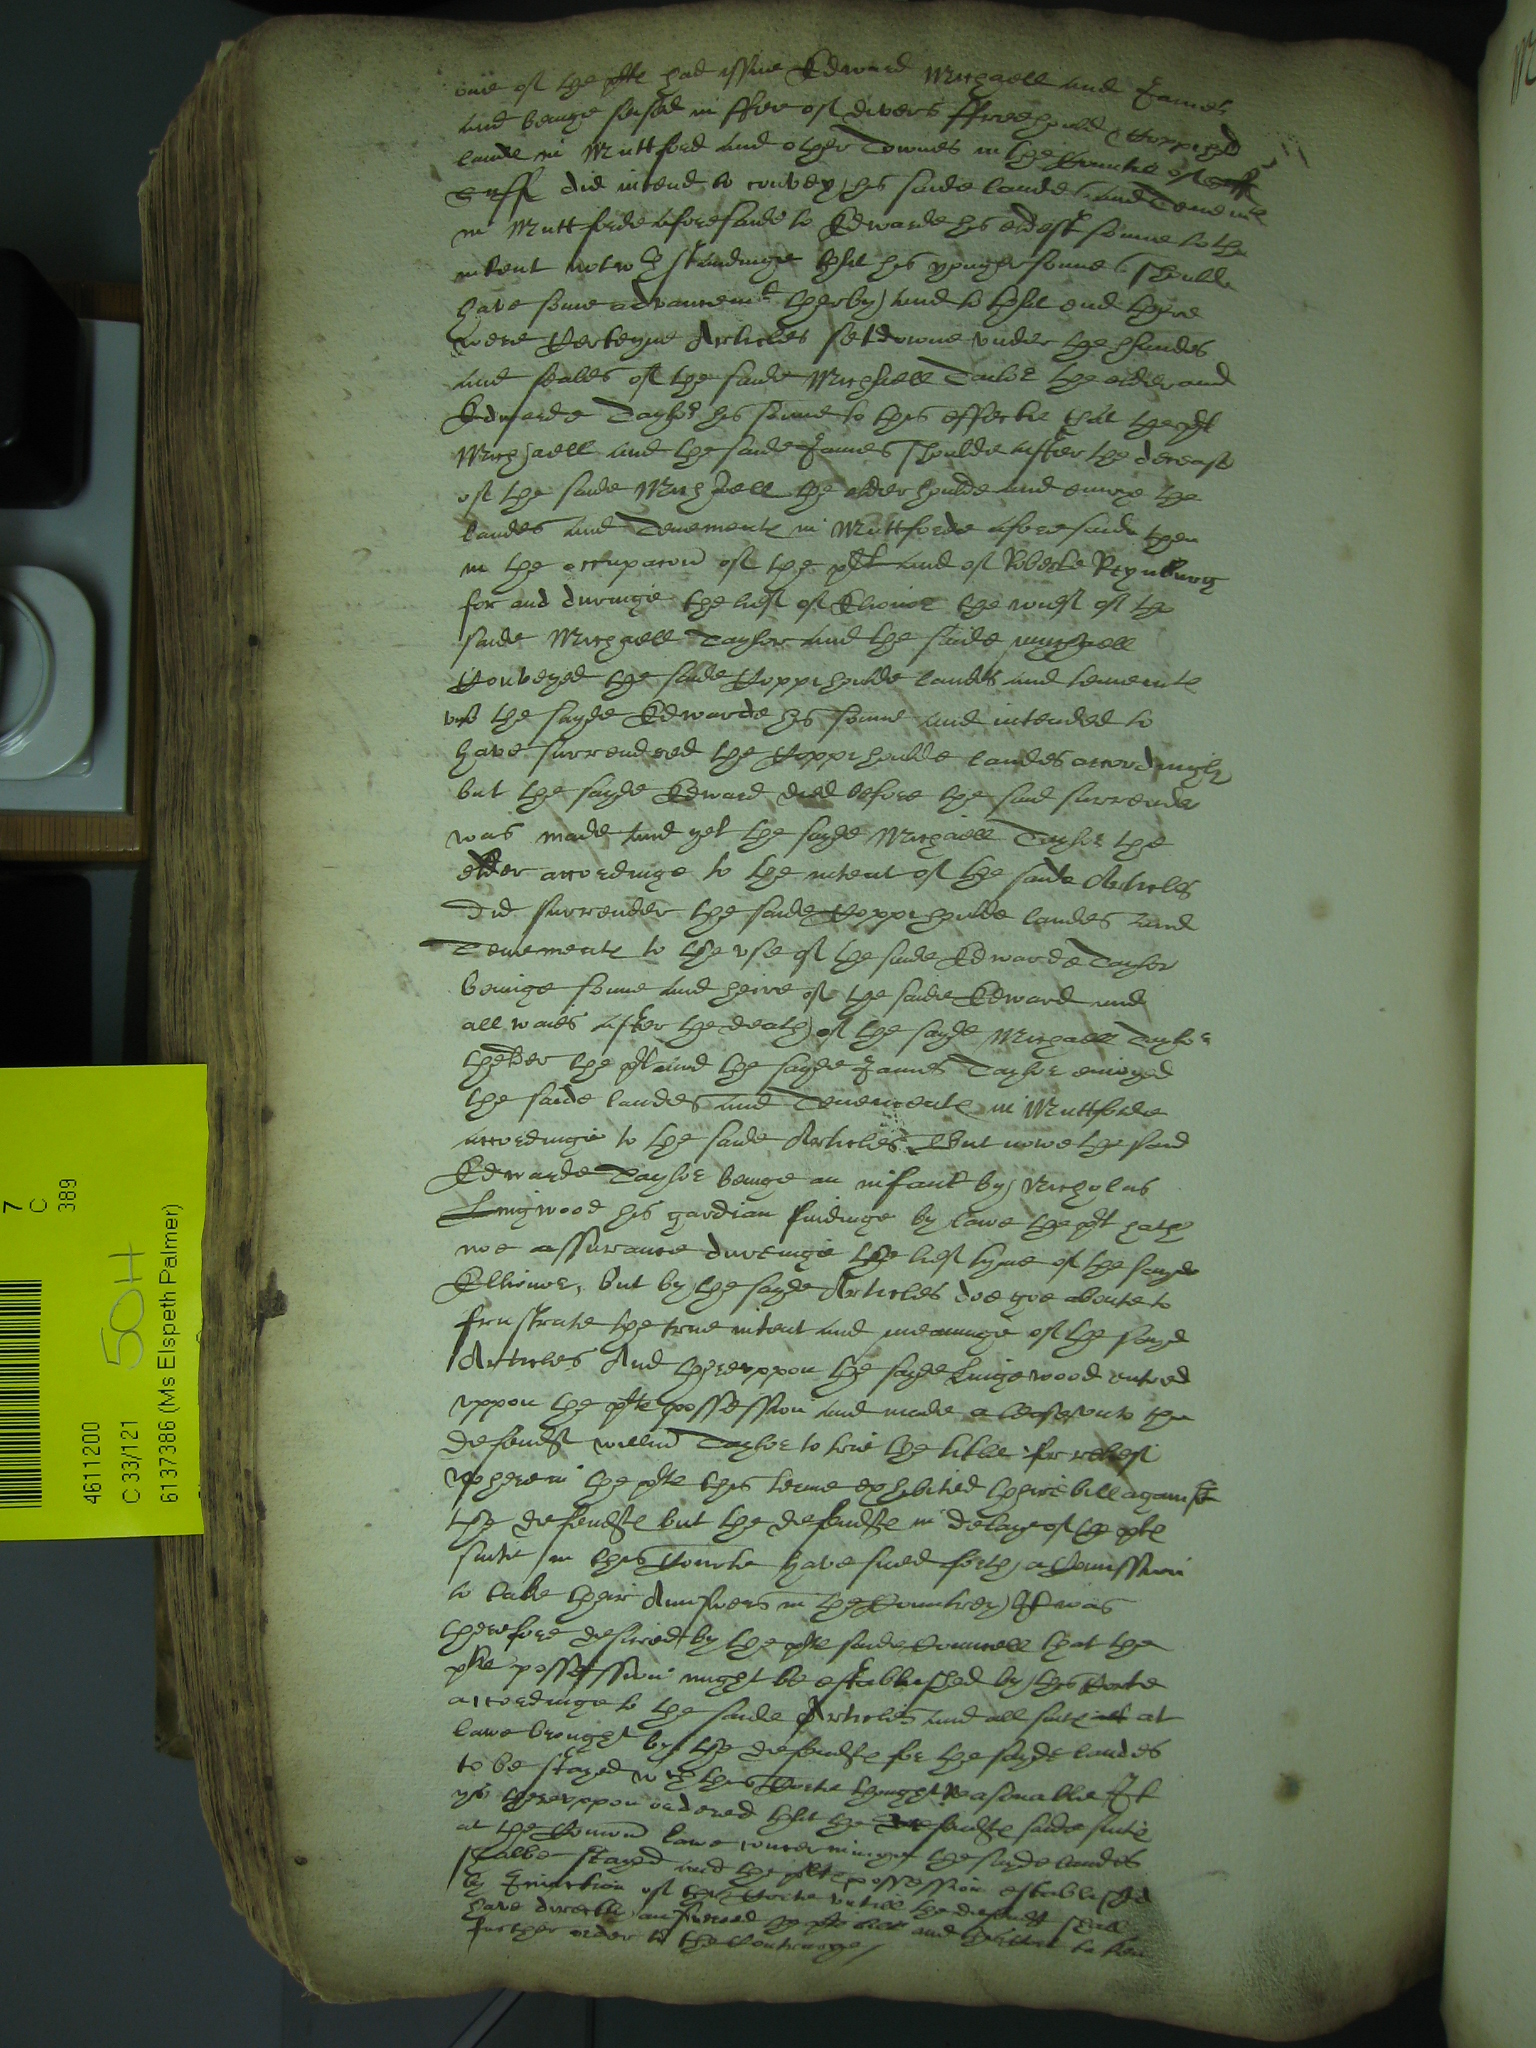 one of the plts had issue Edward Michaell and James
and beinge seised in ffee of divers ffreehould & Coppihold
lande in Muttford and other Townes in the Countie of Suff
Suff did intend to convey his saide landes and Tenemte
in Muttforde aforesaide to Edwarde his eldest sonne to the
intent notwth standinge that his younger sonnes shoulde
have some advancemt therby and to that end there
were Certeyne Articles set downe vnder the handes
and seales of the saide Michaell Taylor the elder and
Edwarde Taylor his sonne to this effecte that the plt
Michaell and the saide James shoulde after the decease
of the saide Michaell the elder houlde and enioye the
landes and Tenements in Muttforde aforesaide then
in the occupacon of the plt and of Roberte Reynburg
for and duringe the lief of Elionor the wief of the
saide Michaell Taylor and the saide Michaell
Conveyed the saide Coppihoulde landes and tenements
vnto the sayde Edwarde his sonne and intended to
have surrendred the Coppihoulde landes accordingly
but the sayde Edward died before the said surrender
was made And yet the sayde Michaell Taylor the
elder accordinge to the intent of the saide Articles
Did surrender the saide Coppihoulde landes and
Tenements to the vse of the saide Edwarde Taylor
beinge sonne and heire of the saide Edward and
all waies after the death of the sayde Michaell Taylor
thelder the plt and the sayde James Taylor enioyed
the saide landes and Tenements in Muttforde
accordinge to the saide Articles But nowe the said
Edwarde Taylor beinge an infant by Nicholas
Lingwood his gardian findinge by lawe the plt hath
noe assurance duringe the lief tyme of the sayde
Ellionor, but by the sayde Articles doe goe aboute to
frustrate the true intent and meaninge of the sayd
Articles And therevppon the sayde Lingewood entred
vppon the plts possession and made a lease vnto the
defendt willm Taylor to trie the title for relief
wherein the plts this terme exhibited theire bill against
the defendts but the defendts in delaye of the plts
suite in this Courte have sued forth a Comission
to take their Aunswers in the Countrey It was
therefore desired by the plts saide Councell that the
plts possession might be established by this Corte
accordinge to the saide Articles and all suits att at
lawe brought by the defendts for the sayde landes
to be stayed wch this Corte thought reasonable It
ys therevppon ordered that the defendts saide suite
at the Comon lawe concerninge the sayde landes
shalbe stayed and the plts possession established
by Iniunction of this Corte vntill the defendts shall
have directly answered the plts bill and this Corte taken
further order to the Contrarye /
7
C
389
50H
4611200
C 33/121
6137386 (Ms Elspeth Palmer)